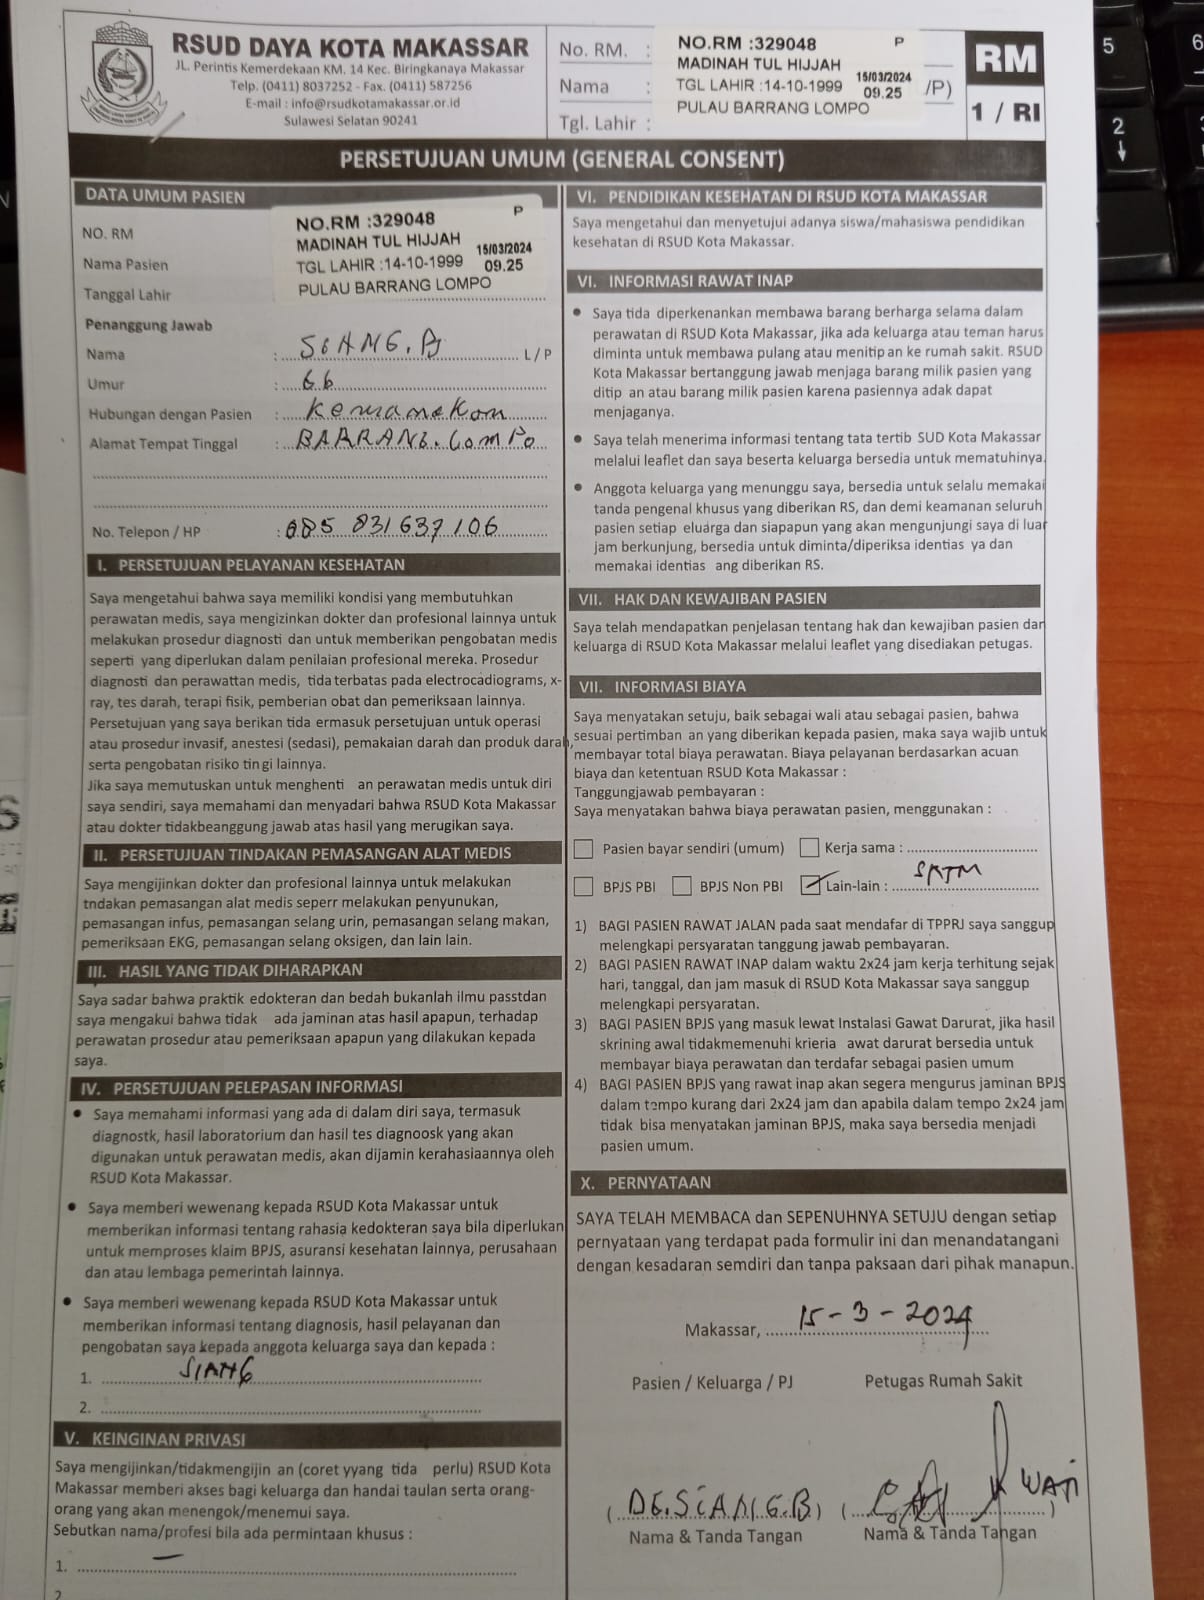 RSUD DAYA KOTA MAKASSAR
JL. Perintis Kemerdekaan KM. 14 Kec. Biringkanaya Makassar
Telp. (0411) 8037252 - Fax. (0411) 587256
E-mail : info@rsudkotamakassar.or.id
Sulawesi Selatan 90241
No. RM. :
Nama :
Tgl. Lahir :
NO.RM :329048 P
MADINAH TUL HIJJAH
TGL LAHIR :14-10-1999 15/03/2024 09.25
PULAU BARRANG LOMPO
/P)
RM
1 / RI
PERSETUJUAN UMUM (GENERAL CONSENT)
DATA UMUM PASIEN
NO. RM
Nama Pasien
Tanggal Lahir
NO.RM :329048 P
MADINAH TUL HIJJAH
TGL LAHIR :14-10-1999 15/03/2024 09.25
PULAU BARRANG LOMPO
Penanggung Jawab
Nama : L / P
Umur : 66
Hubungan dengan Pasien : Kemanakan
Alamat Tempat Tinggal : BARRANG. LomPo
No. Telepon / HP : 085 831637106
I. PERSETUJUAN PELAYANAN KESEHATAN
Saya mengetahui bahwa saya memiliki kondisi yang membutuhkan
perawatan medis, saya mengizinkan dokter dan profesional lainnya untuk
melakukan prosedur diagnosti dan untuk memberikan pengobatan medis
seperti yang diperlukan dalam penilaian profesional mereka. Prosedur
diagnosti dan perawattan medis, tida terbatas pada electrocadiograms, x-
ray, tes darah, terapi fisik, pemberian obat dan pemeriksaan lainnya.
Persetujuan yang saya berikan tida ermasuk persetujuan untuk operasi
atau prosedur invasif, anestesi (sedasi), pemakaian darah dan produk darah,
serta pengobatan risiko tin gi lainnya.
Jika saya memutuskan untuk menghenti an perawatan medis untuk diri
saya sendiri, saya memahami dan menyadari bahwa RSUD Kota Makassar
atau dokter tidakbeanggung jawab atas hasil yang merugikan saya.
II. PERSETUJUAN TINDAKAN PEMASANGAN ALAT MEDIS
Saya mengijinkan dokter dan profesional lainnya untuk melakukan
tndakan pemasangan alat medis seperr melakukan penyunukan,
pemasangan infus, pemasangan selang urin, pemasangan selang makan,
pemeriksaan EKG, pemasangan selang oksigen, dan lain lain.
III. HASIL YANG TIDAK DIHARAPKAN
Saya sadar bahwa praktik edokteran dan bedah bukanlah ilmu passtdan
saya mengakui bahwa tidak ada jaminan atas hasil apapun, terhadap
perawatan prosedur atau pemeriksaan apapun yang dilakukan kepada
saya.
IV. PERSETUJUAN PELEPASAN INFORMASI
• Saya memahami informasi yang ada di dalam diri saya, termasuk
diagnostk, hasil laboratorium dan hasil tes diagnoosk yang akan
digunakan untuk perawatan medis, akan dijamin kerahasiaannya oleh
RSUD Kota Makassar.
• Saya memberi wewenang kepada RSUD Kota Makassar untuk
memberikan informasi tentang rahasia kedokteran saya bila diperlukan
untuk memproses klaim BPJS, asuransi kesehatan lainnya, perusahaan
dan atau lembaga pemerintah lainnya.
• Saya memberi wewenang kepada RSUD Kota Makassar untuk
memberikan informasi tentang diagnosis, hasil pelayanan dan
pengobatan saya kepada anggota keluarga saya dan kepada :
1. SIANG
2.
V. KEINGINAN PRIVASI
Saya mengijinkan/tidakmengijin an (coret yyang tida perlu) RSUD Kota
Makassar memberi akses bagi keluarga dan handai taulan serta orang-
orang yang akan menengok/menemui saya.
Sebutkan nama/profesi bila ada permintaan khusus :
1. —
2
VI. PENDIDIKAN KESEHATAN DI RSUD KOTA MAKASSAR
Saya mengetahui dan menyetujui adanya siswa/mahasiswa pendidikan
kesehatan di RSUD Kota Makassar.
VI. INFORMASI RAWAT INAP
• Saya tida diperkenankan membawa barang berharga selama dalam
perawatan di RSUD Kota Makassar, jika ada keluarga atau teman harus
diminta untuk membawa pulang atau menitip an ke rumah sakit. RSUD
Kota Makassar bertanggung jawab menjaga barang milik pasien yang
ditip an atau barang milik pasien karena pasiennya adak dapat
menjaganya.
• Saya telah menerima informasi tentang tata tertib SUD Kota Makassar
melalui leaflet dan saya beserta keluarga bersedia untuk mematuhinya.
• Anggota keluarga yang menunggu saya, bersedia untuk selalu memakai
tanda pengenal khusus yang diberikan RS, dan demi keamanan seluruh
pasien setiap eluarga dan siapapun yang akan mengunjungi saya di luar
jam berkunjung, bersedia untuk diminta/diperiksa identias ya dan
memakai identias ang diberikan RS.
VII. HAK DAN KEWAJIBAN PASIEN
Saya telah mendapatkan penjelasan tentang hak dan kewajiban pasien dan
keluarga di RSUD Kota Makassar melalui leaflet yang disediakan petugas.
VII. INFORMASI BIAYA
Saya menyatakan setuju, baik sebagai wali atau sebagai pasien, bahwa
sesuai pertimban an yang diberikan kepada pasien, maka saya wajib untuk
membayar total biaya perawatan. Biaya pelayanan berdasarkan acuan
biaya dan ketentuan RSUD Kota Makassar :
Tanggungjawab pembayaran :
Saya menyatakan bahwa biaya perawatan pasien, menggunakan :
Pasien bayar sendiri (umum) Kerja sama :
BPJS PBI BPJS Non PBI Lain-lain : SKTM
1) BAGI PASIEN RAWAT JALAN pada saat mendafar di TPPRJ saya sanggup
melengkapi persyaratan tanggung jawab pembayaran.
2) BAGI PASIEN RAWAT INAP dalam waktu 2x24 jam kerja terhitung sejak
hari, tanggal, dan jam masuk di RSUD Kota Makassar saya sanggup
melengkapi persyaratan.
3) BAGI PASIEN BPJS yang masuk lewat Instalasi Gawat Darurat, jika hasil
skrining awal tidakmemenuhi krieria awat darurat bersedia untuk
membayar biaya perawatan dan terdafar sebagai pasien umum
4) BAGI PASIEN BPJS yang rawat inap akan segera mengurus jaminan BPJS
dalam tempo kurang dari 2x24 jam dan apabila dalam tempo 2x24 jam
tidak bisa menyatakan jaminan BPJS, maka saya bersedia menjadi
pasien umum.
X. PERNYATAAN
SAYA TELAH MEMBACA dan SEPENUHNYA SETUJU dengan setiap
pernyataan yang terdapat pada formulir ini dan menandatangani
dengan kesadaran semdiri dan tanpa paksaan dari pihak manapun.
Makassar, 15-3-2024
Pasien / Keluarga / PJ Petugas Rumah Sakit
( DE.SIANG.B ) ( WATI )
Nama & Tanda Tangan Nama & Tanda Tangan
5
6
2